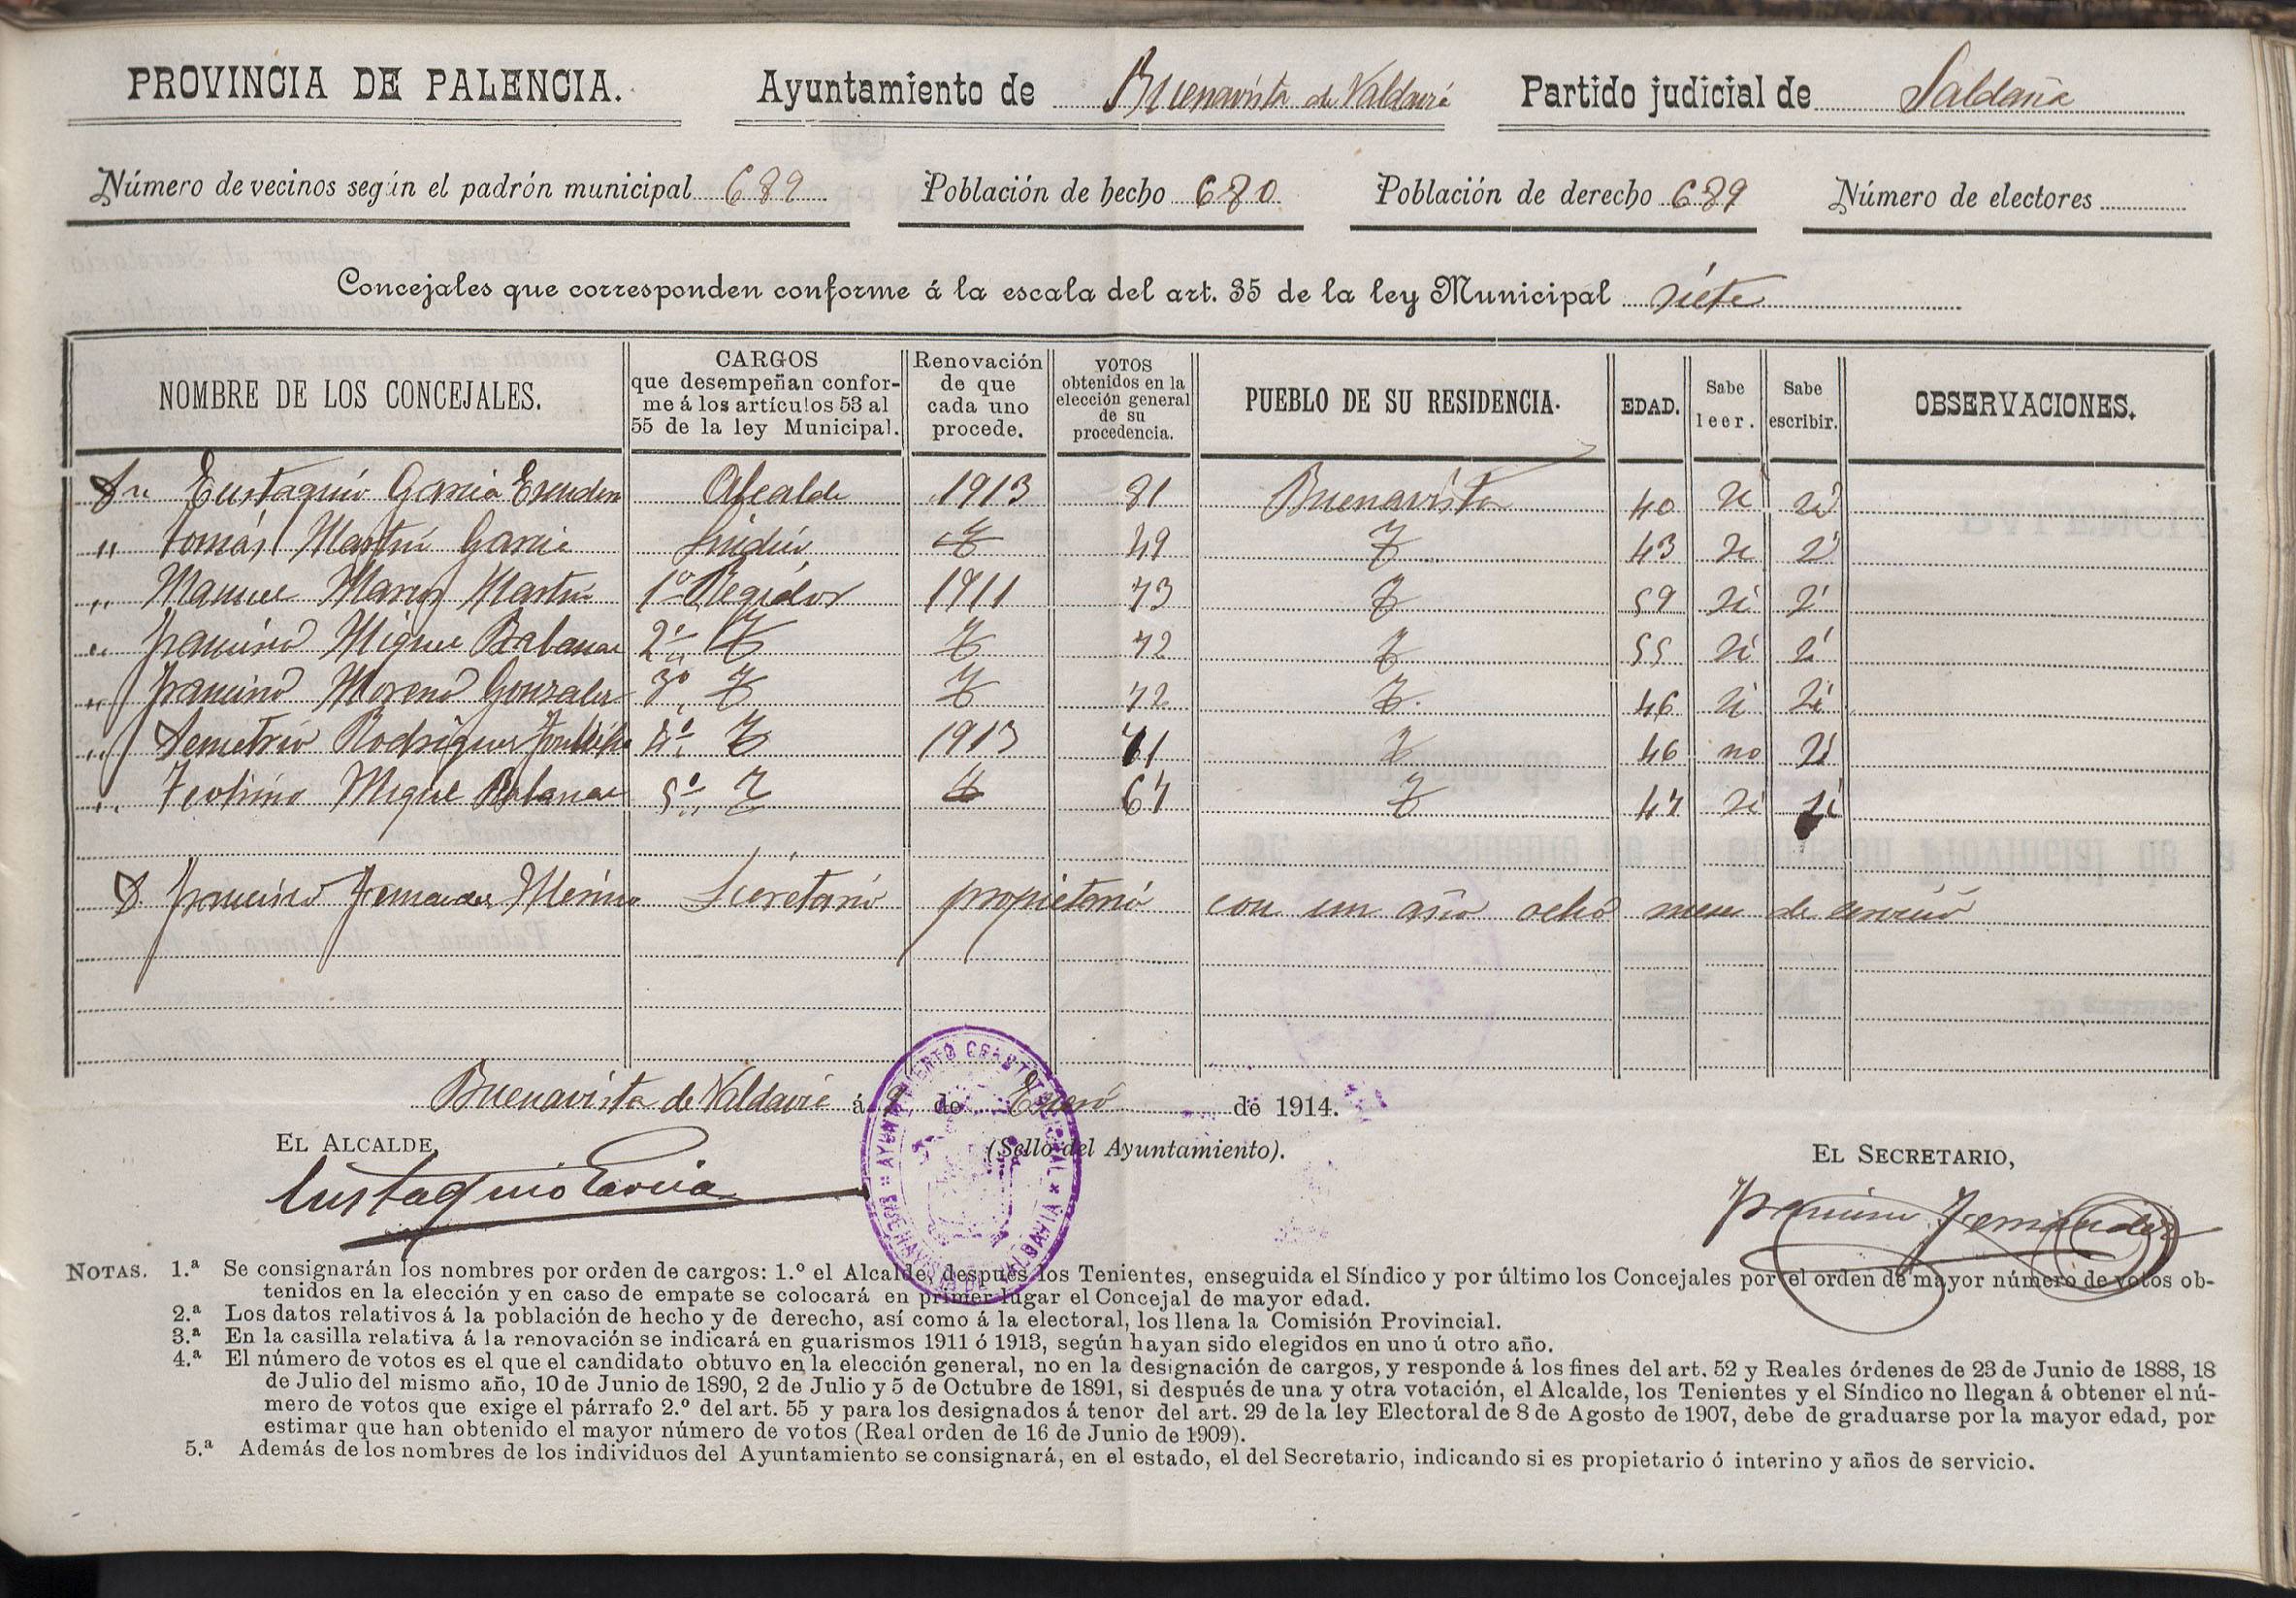 PROVINCIA DE PALENCIA. Ayuntamiento de Buenavista de Valdavia Partido judicial de Saldaña
Número de vecinos según el padrón municipal 689 Población de hecho 680 Población de derecho 689 Número de electores
Concejales que corresponden conforme á la escala del art. 35 de la ley Municipal siete
NOMBRE DE LOS CONCEJALES. CARGOS que desempeñan conforme á los artículos 53 al 55 de la ley Municipal. Renovación de que cada uno procede. VOTOS obtenidos en la elección general de su procedencia. PUEBLO DE SU RESIDENCIA. EDAD. Sabe leer. Sabe escribir. OBSERVACIONES.
Dn Eustaquio Garcia Alcalde 1913 81 Buenavista 40 si si
" Tomás Martin Garcia Sindico 49 43 si si
" Manuel Marcos Martin 1º Regidor 1911 73 59 si si
" Francisco Miguel 2º 72 55 si si
" Francisco Moreno Gonzalez 3º 72 46 si si
" Demetrio Rodriguez 4º 1913 71 46 no si
" Teotimo Miguel 5º 67 47 si si
D. Francisco Fernandez Merino Secretario propietario con un año ocho meses de servicio
Buenavista de Valdavia á de Enero de 1914.
EL ALCALDE, (Sello del Ayuntamiento). EL SECRETARIO,
Eustaquio Garcia Francisco Fernandez
AYUNTAMIENTO CONSTITUCIONAL * BUENAVISTA DE VALDAVIA
NOTAS. 1.ª Se consignarán los nombres por orden de cargos: 1.º el Alcalde, después los Tenientes, enseguida el Síndico y por último los Concejales por el orden de mayor número de votos ob-
tenidos en la elección y en caso de empate se colocará en primer lugar el Concejal de mayor edad.
2.ª Los datos relativos á la población de hecho y de derecho, así como á la electoral, los llena la Comisión Provincial.
3.ª En la casilla relativa á la renovación se indicará en guarismos 1911 ó 1913, según hayan sido elegidos en uno ú otro año.
4.ª El número de votos es el que el candidato obtuvo en la elección general, no en la designación de cargos, y responde á los fines del art. 52 y Reales órdenes de 23 de Junio de 1888, 18
de Julio del mismo año, 10 de Junio de 1890, 2 de Julio y 5 de Octubre de 1891, si después de una y otra votación, el Alcalde, los Tenientes y el Síndico no llegan á obtener el nú-
mero de votos que exige el párrafo 2.º del art. 55 y para los designados á tenor del art. 29 de la ley Electoral de 8 de Agosto de 1907, debe de graduarse por la mayor edad, por
estimar que han obtenido el mayor número de votos (Real orden de 16 de Junio de 1909).
5.ª Además de los nombres de los individuos del Ayuntamiento se consignará, en el estado, el del Secretario, indicando si es propietario ó interino y años de servicio.